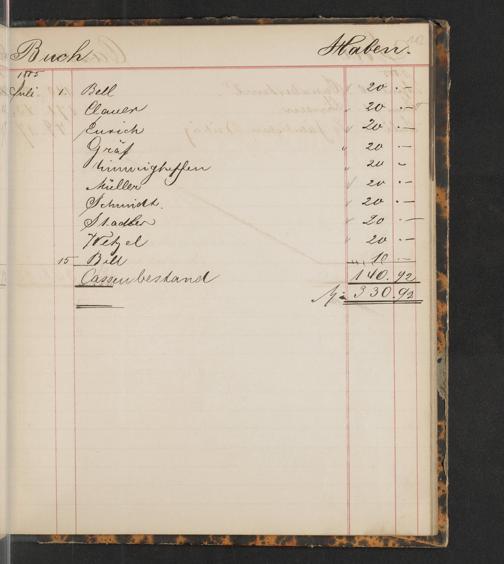 Buch Haben.
1885
Juli 1. Bell 20.—
Clauer " 20.—
Eurich " 20.—
Gräf " 20.—
" 20 -
Müller " 20.—
Schmidt. " 20.—
Stadler " 20.—
Wetzel " 20.—
15 Bell " 10.—
Cassenbestand 140.92
330.92